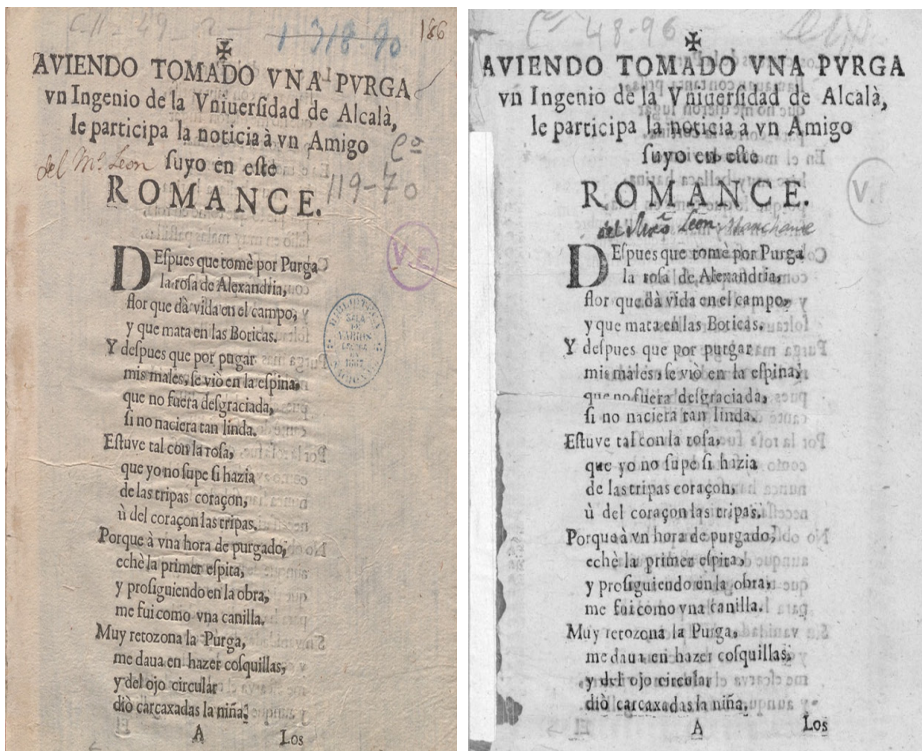 C.ª 49 2
1-318-90
186
✠
AVIENDO TOMADO VNA PVRGA
vn Ingenio de la Vniuersidad de Alcalà,
le participa la noticia à vn Amigo
suyo en este
del Mº Leon
Cª
119-70
ROMANCE.
V.E.
BIBLIOTECA
SALA
DE
VARIOS
DEspues que tomè por Purga
la rosa de Alexandria,
flor que dà vida en el campo,
y que mata en las Boticas.
Y despues que por pugar
mis males, se viò en la espina,
que no fuera desgraciada,
si no naciera tan linda.
Estuve tal con la rosa,
que yo no supe si hazia
de las tripas coraçon,
ù del coraçon las tripas.
Porque à vna hora de purgado,
echè la primer espita,
y prosiguiendo en la obra,
me fui como vna canilla.
Muy retozona la Purga,
me daua en hazer cosquillas,
y del ojo circular
diò carcaxadas la niña.
A Los
Cª 48-96
✠
AVIENDO TOMADO VNA PVRGA
vn Ingenio de la Vniuersidad de Alcalà,
le participa la noticia a vn Amigo
suyo en este
ROMANCE.
V.
del Mrõ Leon Marchante
DEspues que tomè por Purga
la rosa de Alexandria,
flor que dà vida en el campo,
y que mata en las Boticas.
Y despues que por purgar
mis males, se viò en la espina,
que no fuera desgraciada,
si no naciera tan linda.
Estuve tal con la rosa,
que yo no supe si hazia
de las tripas coraçon,
ù del coraçon las tripas.
Porque à vn hora de purgado,
echè la primer espita,
y prosiguiendo en la obra,
me fui como vna canilla.
Muy retozona la Purga,
me daua en hazer cosquillas,
y del ojo circular
diò carcaxadas la niña.
A Los